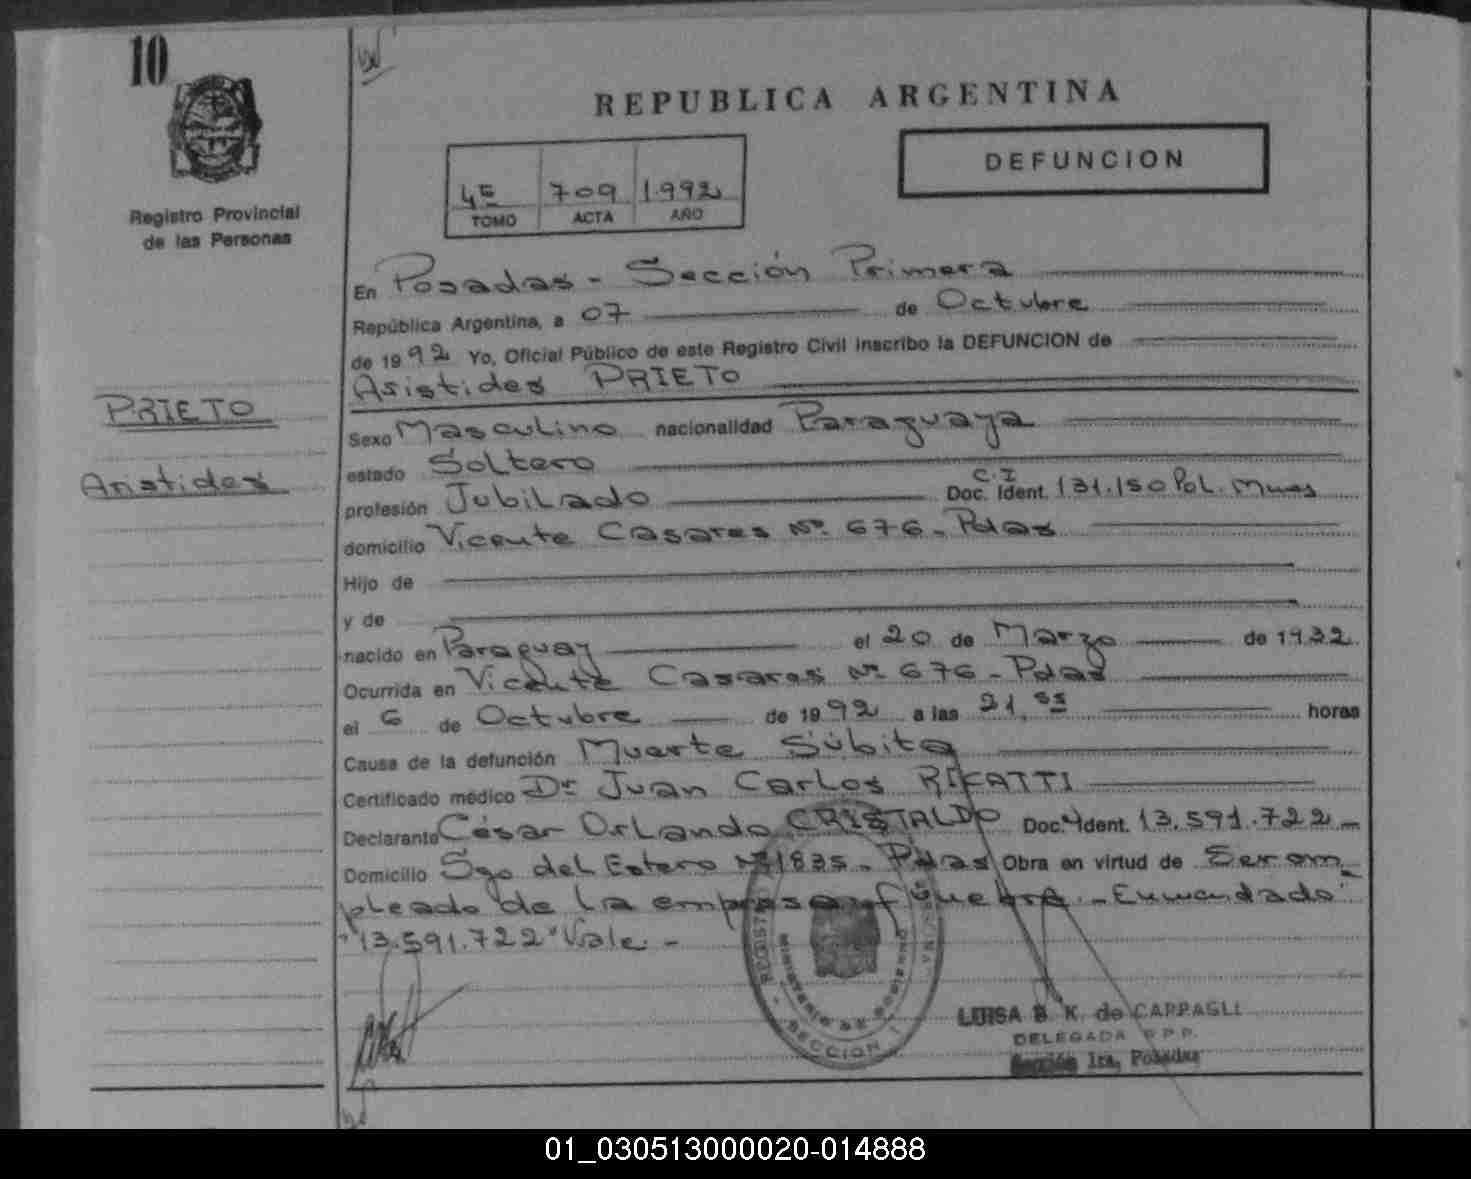 10
REPUBLICA ARGENTINA
DEFUNCION
4E 709 1.992
TOMO ACTA AÑO
Registro Provincial
de las Personas
En Posadas - Sección Primera
República Argentina, a 07 de Octubre
de 1992 Yo, Oficial Público de este Registro Civil inscribo la DEFUNCION de
Aristides PRIETO
PRIETO
Aristides
Sexo Masculino nacionalidad Paraguaya
estado Soltero
C.I
profesión Jubilado Doc. Ident. 131.150 Pol. Mnes
domicilio Vicente Casares Nº 676 - Pdas
Hijo de
y de
nacido en Paraguay el 20 de Marzo de 1932
Ocurrida en Vicente Casares Nº 676 - Pdas
el 6 de Octubre de 1992 a las 21, horas
Causa de la defunción Muerte Súbita
Certificado médico Dr Juan Carlos RICATTI
Declarante César Orlando CRISTALDO Doc. Ident. 13.591.722 -
Domicilio Sgo del Estero Nº 1835 - Pdas Obra en virtud de Ser em
pleado de la empresa fúnebre - Enmendado:
"13.591.722" Vale. -
REGISTRO
MINISTERIO DE GOBIERNO
SECCION 1
LUISA B. K. de CAPPAGLI
DELEGADA R.P.P.
Sección 1ra, Posadas
01_030513000020-014888